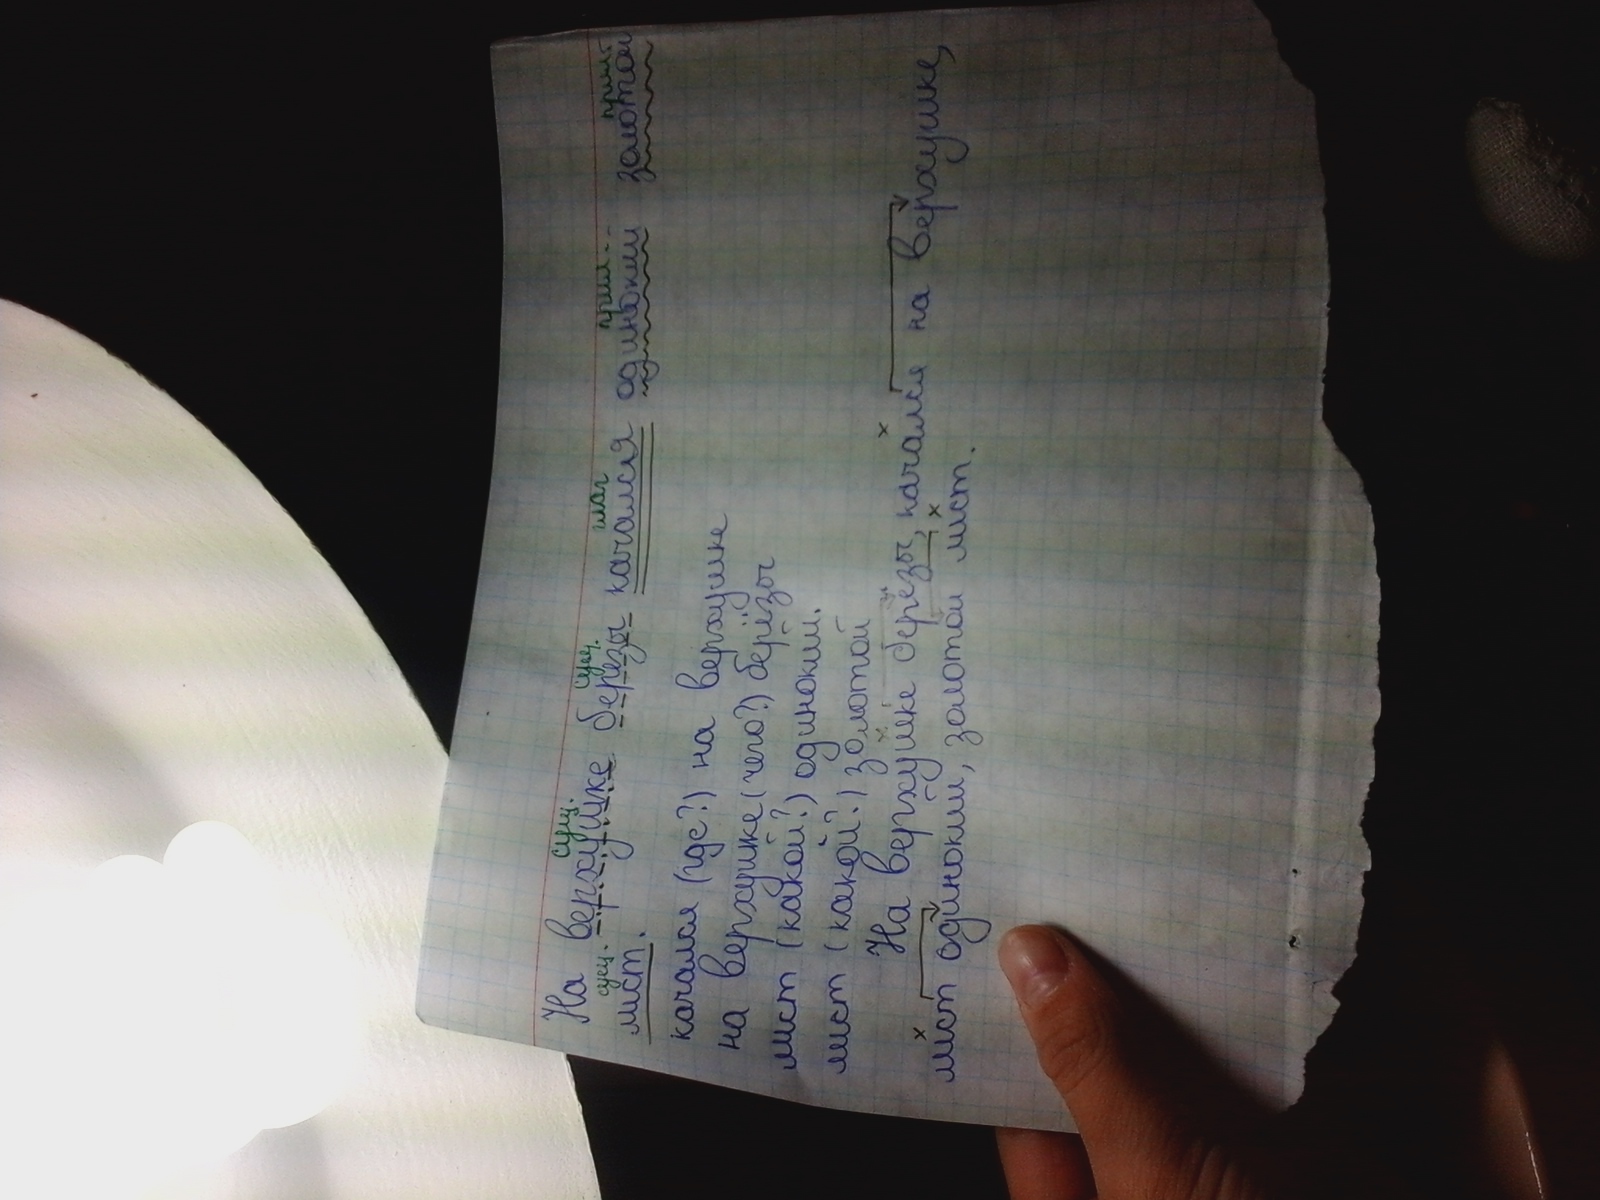 сущ. сущ. глаг прил. прил
На верхушке берёзы качался одинокий золотой
сущ.
лист.
качался (где?) на верхушке
на верхушке (чего?) берёзы
лист (какой?) одинокий.
лист (какой?) золотой
На верхушке берёзы, качался на верхушке,
лист одинокий, золотой лист.